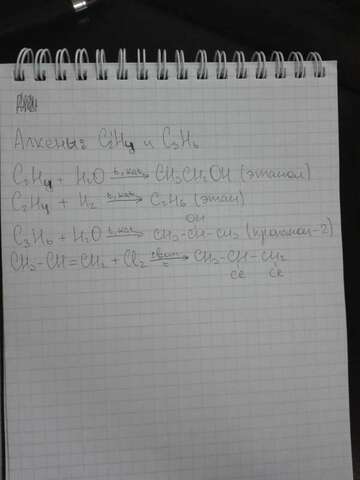 Алкены: C2H4 и C3H6
C2H4 + H2O t, кат → CH3CH2OH (этанол)
C2H4 + H2 t, кат → C2H6 (этан)
OH
C3H6 + H2O t, кат → CH3-CH-CH3 (пропанол-2)
CH3-CH=CH2 + Cl2 свет → CH3-CH-CH2
Cl Cl